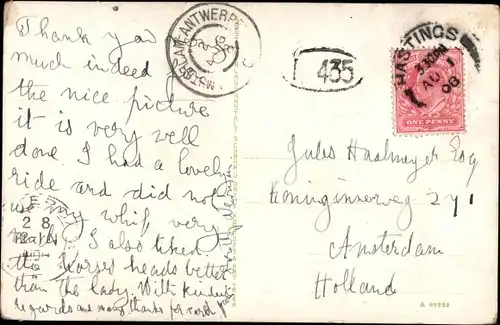 Thank you
much indeed for
the nice picture
it is very well
done. I had a lovely
ride and did not
use my whip very
much. I also liked
the horses heads better
than the lady. With kindest
regards and many thanks for card
AMSTERDAM-ANTWERPEN
435
HASTINGS
AU 1
08
ONE PENNY
Jules Haalmeyer Esq
Koninginneweg 271
Amsterdam
Holland
2 8
A 09228